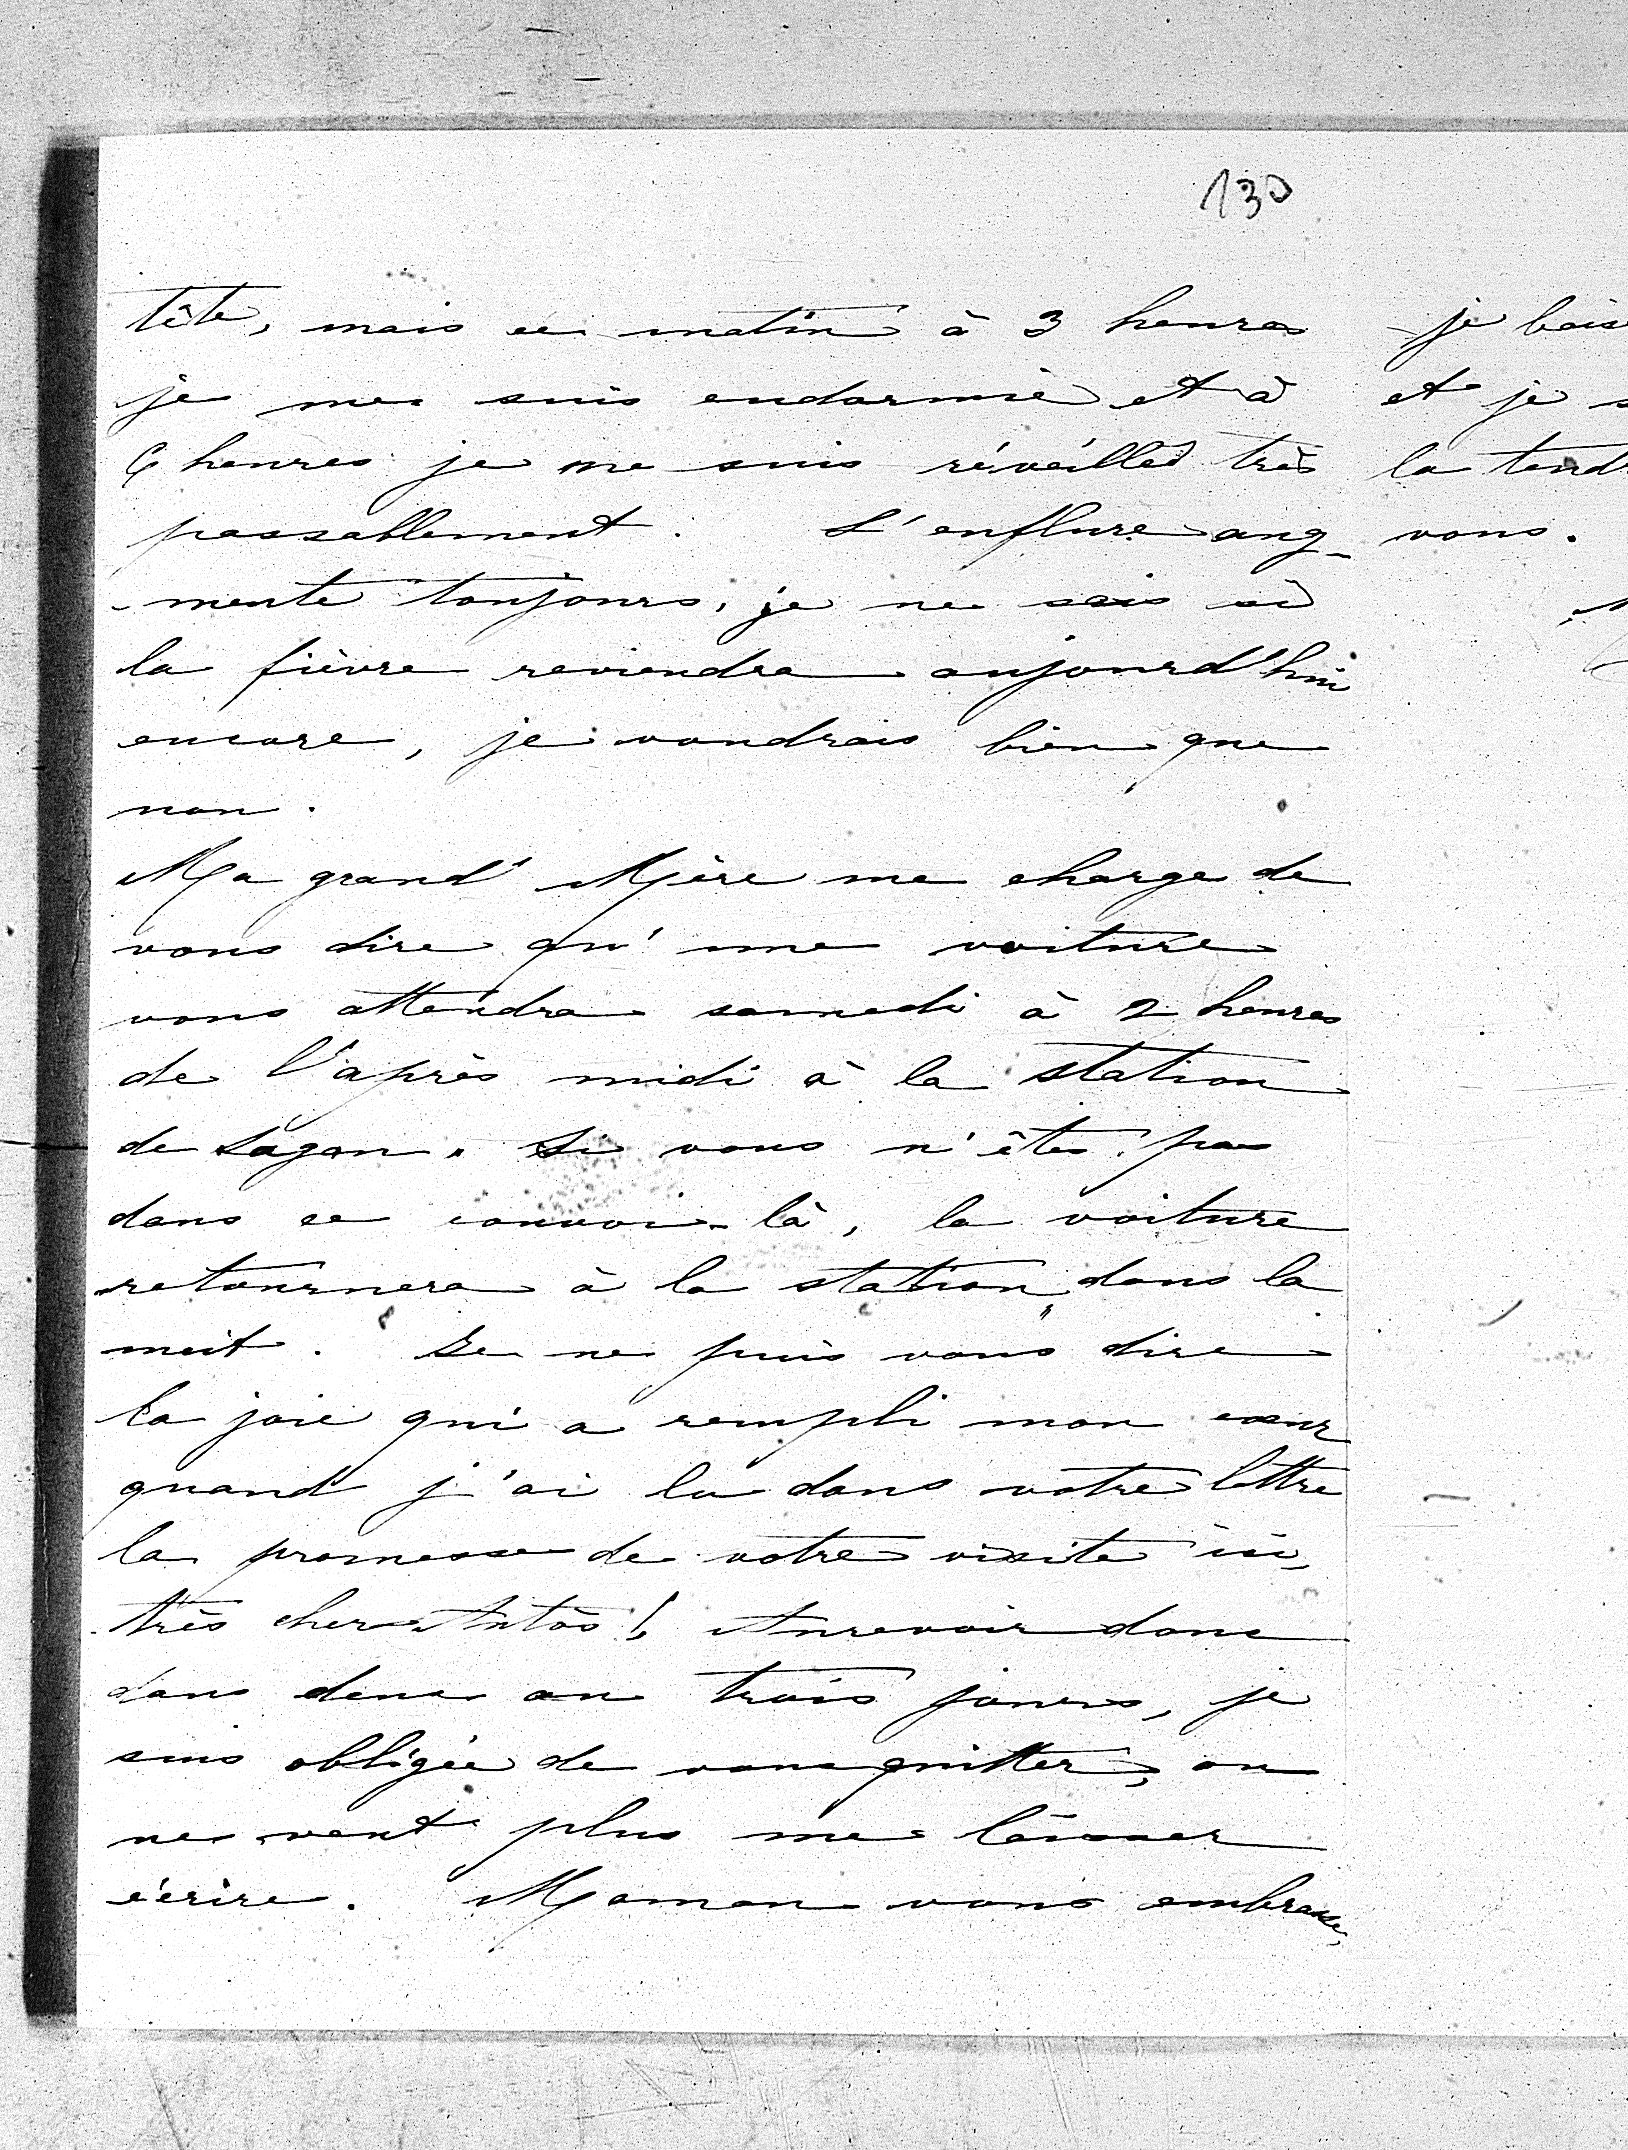 130
tête, mais ce matin à 3 heures
je me suis endormie et à
6 heures je me suis réveillée très
passablement. L'enflure aug-
-mente toujours, je ne sais si
la fièvre reviendra aujourd'hui
encore, je voudrais bien que
non.
Ma grand' Mère me charge de
vous dire qu'une voiture
vous attendra samedi à 2 heures
de l'après midi à la station
de Sagan. Si vous n'êtes pas
dans ce convoi-là, la voiture
retournera à la station dans la
nuit. Je ne puis vous dire
la joie qui a rempli mon cœur
quand j'ai lu dans votre lettre
la promesse de votre visite ici,
très cher Antos! Aurevoir donc
dans deux ou trois jours, je
suis obligée de vous quitter, on
ne veut plus me laisser
écrire. Maman vous embrasse,
je
et je
la
vous.